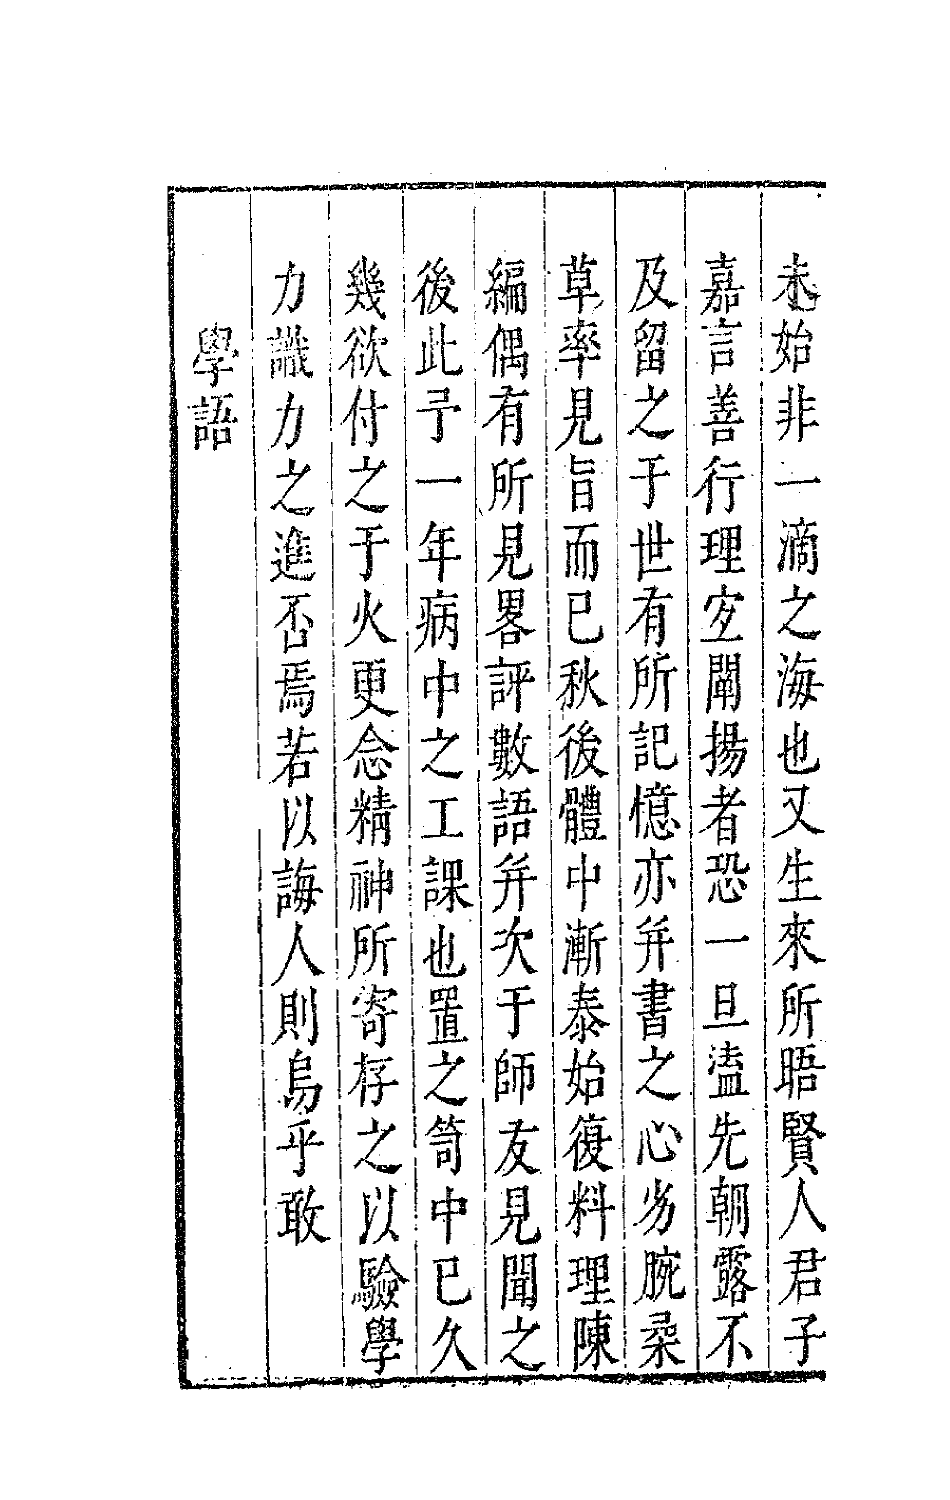 未始非一滴之海也又生來所晤賢人君子
嘉言善行理宜闡揚者恐一旦溘先朝露不
及留之于世有所記憶亦并書之心劣腕柔
草率見旨而已秋後體中漸泰始復料理陳
編偶有所見畧評數語并次于師友見聞之
後此予一年病中之工課也置之笥中已久
幾欲付之于火更念精神所寄存之以驗學
力識力之進否焉若以誨人則烏乎敢
學語